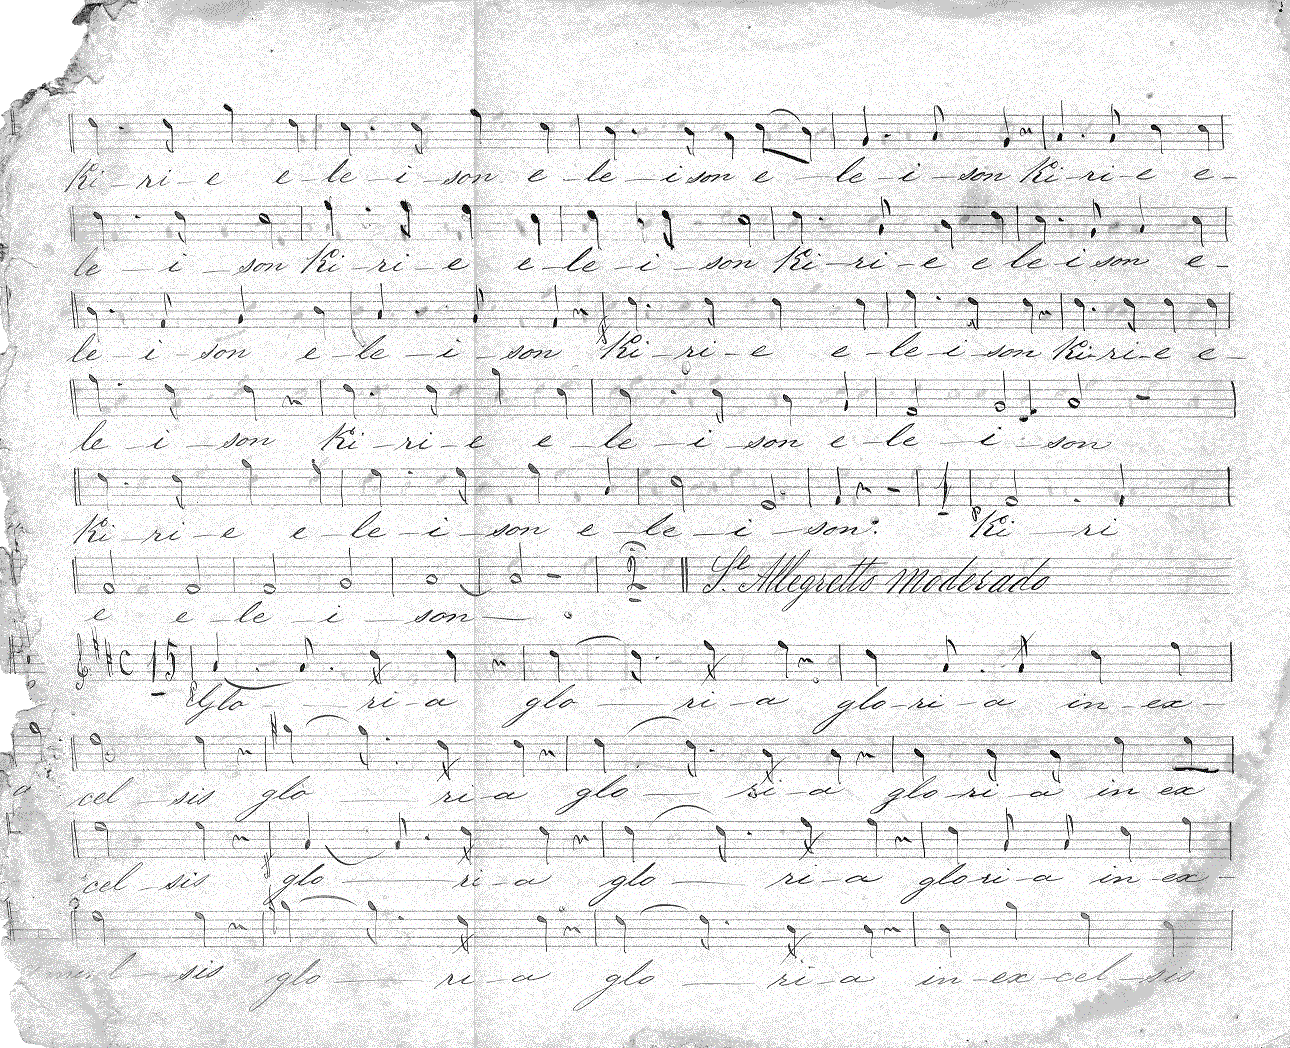 Ki - ri - e e - le - i - son e - le - i son e - le - i - son Ki - ri - e e -
le - i - son Ki - ri - e e - le - i - son Ki - ri - e e le i son e -
le - i - son e - le - i - son Ki - ri - e e - le - i - son Ki - ri - e e -
le - i - son Ki - ri - e e - le - i - son e - le i - son
Ki - ri - e e - le - i - son e - le - i - son. Ki - ri
2 Allegretto moderado
e e - le - i - son
C 15
Glo - ri - a glo - ri - a glo - ri - a in - ex -
cel - sis glo - ri - a glo - ri - a glo ri - a in ex
cel - sis glo - ri - a glo - ri - a glo ri - a in - ex -
sis glo - ri - a glo - ri - a in - ex - cel - sis